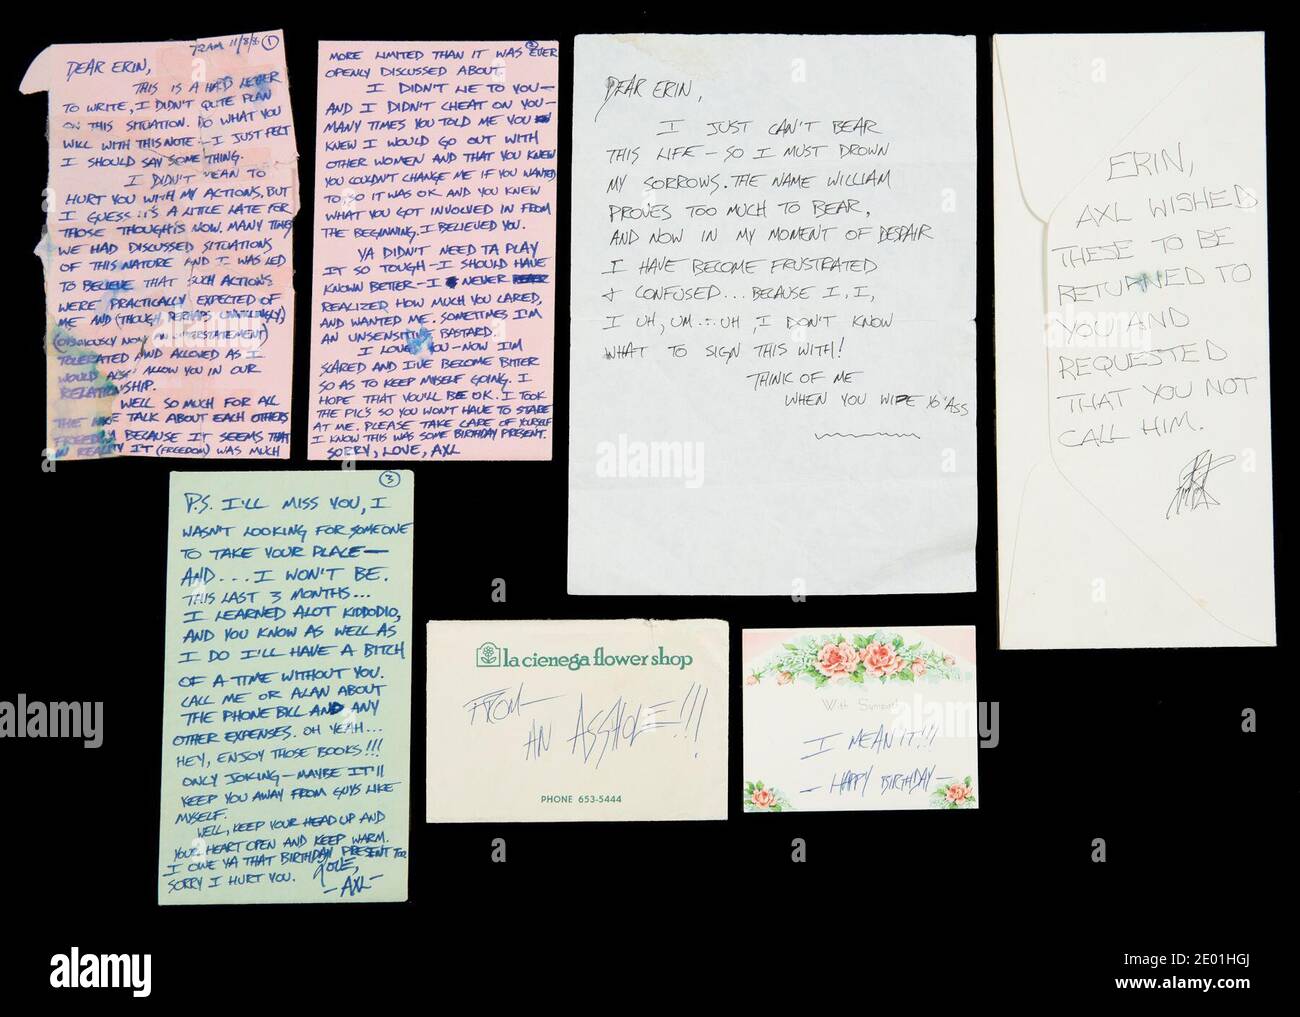 7:20AM 11/8/8 1
DEAR ERIN,
THIS IS A HARD LETTER
TO WRITE, I DIDN'T QUITE PLAN
ON THIS SITUATION. DO WHAT YOU
WILL WITH THIS NOTE - I JUST FELT
I SHOULD SAY SOME THING.
I DIDN'T MEAN TO
HURT YOU WITH MY ACTIONS, BUT
I GUESS IT'S A LITTLE LATE FOR
THOSE THOUGHTS NOW. MANY TIMES
WE HAD DISCUSSED SITUATIONS
OF THIS NATURE AND I WAS LED
TO BELIEVE THAT SUCH ACTIONS
WERE PRACTICALLY EXPECTED OF
ME AND (THOUGH, PERHAPS UNWILLINGLY)
(OBVIOUSLY NOW UNDERSTATEMENT)
TOLERATED AND ALLOWED AS I
WOULD ALSO ALLOW YOU IN OUR
RELATIONSHIP.
WELL SO MUCH FOR ALL
THE NICE TALK ABOUT EACH OTHERS
FREEDOM BECAUSE IT SEEMS THAT
IN REALITY IT (FREEDOM) WAS MUCH
2
MORE LIMITED THAN IT WAS EVER
OPENLY DISCUSSED ABOUT.
I DIDN'T LIE TO YOU-
AND I DIDN'T CHEAT ON YOU-
MANY TIMES YOU TOLD ME YOU
KNEW I WOULD GO OUT WITH
OTHER WOMEN AND THAT YOU KNEW
YOU COULDN'T CHANGE ME IF YOU WANTED
TO, SO IT WAS OK AND YOU KNEW
WHAT YOU GOT INVOLVED IN FROM
THE BEGINNING. I BELIEVED YOU.
YA DIDN'T NEED TA PLAY
IT SO TOUGH - I SHOULD HAVE
KNOWN BETTER - I NEVER
REALIZED HOW MUCH YOU CARED,
AND WANTED ME. SOMETIMES I'M
AN UNSENSITIVE BASTARD.
I LOVE YOU - NOW I'M
SCARED AND I'VE BECOME BITTER
SO AS TO KEEP MYSELF GOING. I
HOPE THAT YOU'LL BE OK. I TOOK
THE PIC'S SO YOU WON'T HAVE TO STARE
AT ME. PLEASE TAKE CARE OF YOURSELF
I KNOW THIS WAS SOME BIRTHDAY PRESENT.
SORRY, LOVE, AXL
3
P.S. I'LL MISS YOU, I
WASN'T LOOKING FOR SOMEONE
TO TAKE YOUR PLACE -
AND... I WON'T BE.
THIS LAST 3 MONTHS...
I LEARNED ALOT KIDDODIO,
AND YOU KNOW AS WELL AS
I DO I'LL HAVE A BITCH
OF A TIME WITHOUT YOU.
CALL ME OR ALAN ABOUT
THE PHONE BILL AND ANY
OTHER EXPENSES. OH YEAH...
HEY, ENJOY THOSE BOOKS!!!
ONLY JOKING - MAYBE IT'LL
KEEP YOU AWAY FROM GUYS LIKE
MYSELF.
WELL, KEEP YOUR HEAD UP AND
YOUR HEART OPEN AND KEEP WARM.
I OWE YA THAT BIRTHDAY PRESENT TOO
SORRY I HURT YOU. LOVE,
- AXL -
DEAR ERIN,
I JUST CAN'T BEAR
THIS LIFE - SO I MUST DROWN
MY SORROWS. THE NAME WILLIAM
PROVES TOO MUCH TO BEAR,
AND NOW IN MY MOMENT OF DESPAIR
I HAVE BECOME FRUSTRATED
& CONFUSED... BECAUSE I, I,
I UH, UM...UH, I DON'T KNOW
WHAT TO SIGN THIS WITH!
THINK OF ME
WHEN YOU WIPE YO'ASS
ERIN,
AXL WISHED
THESE TO BE
RETURNED TO
YOU AND
REQUESTED
THAT YOU NOT
CALL HIM.
la cienega flower shop
FROM -
AN ASSHOLE!!!
PHONE 653-5444
With Sympathy
I MEAN IT!!!
- HAPPY BIRTHDAY -
alamy
Image ID: 2E01HGJ
www.alamy.com